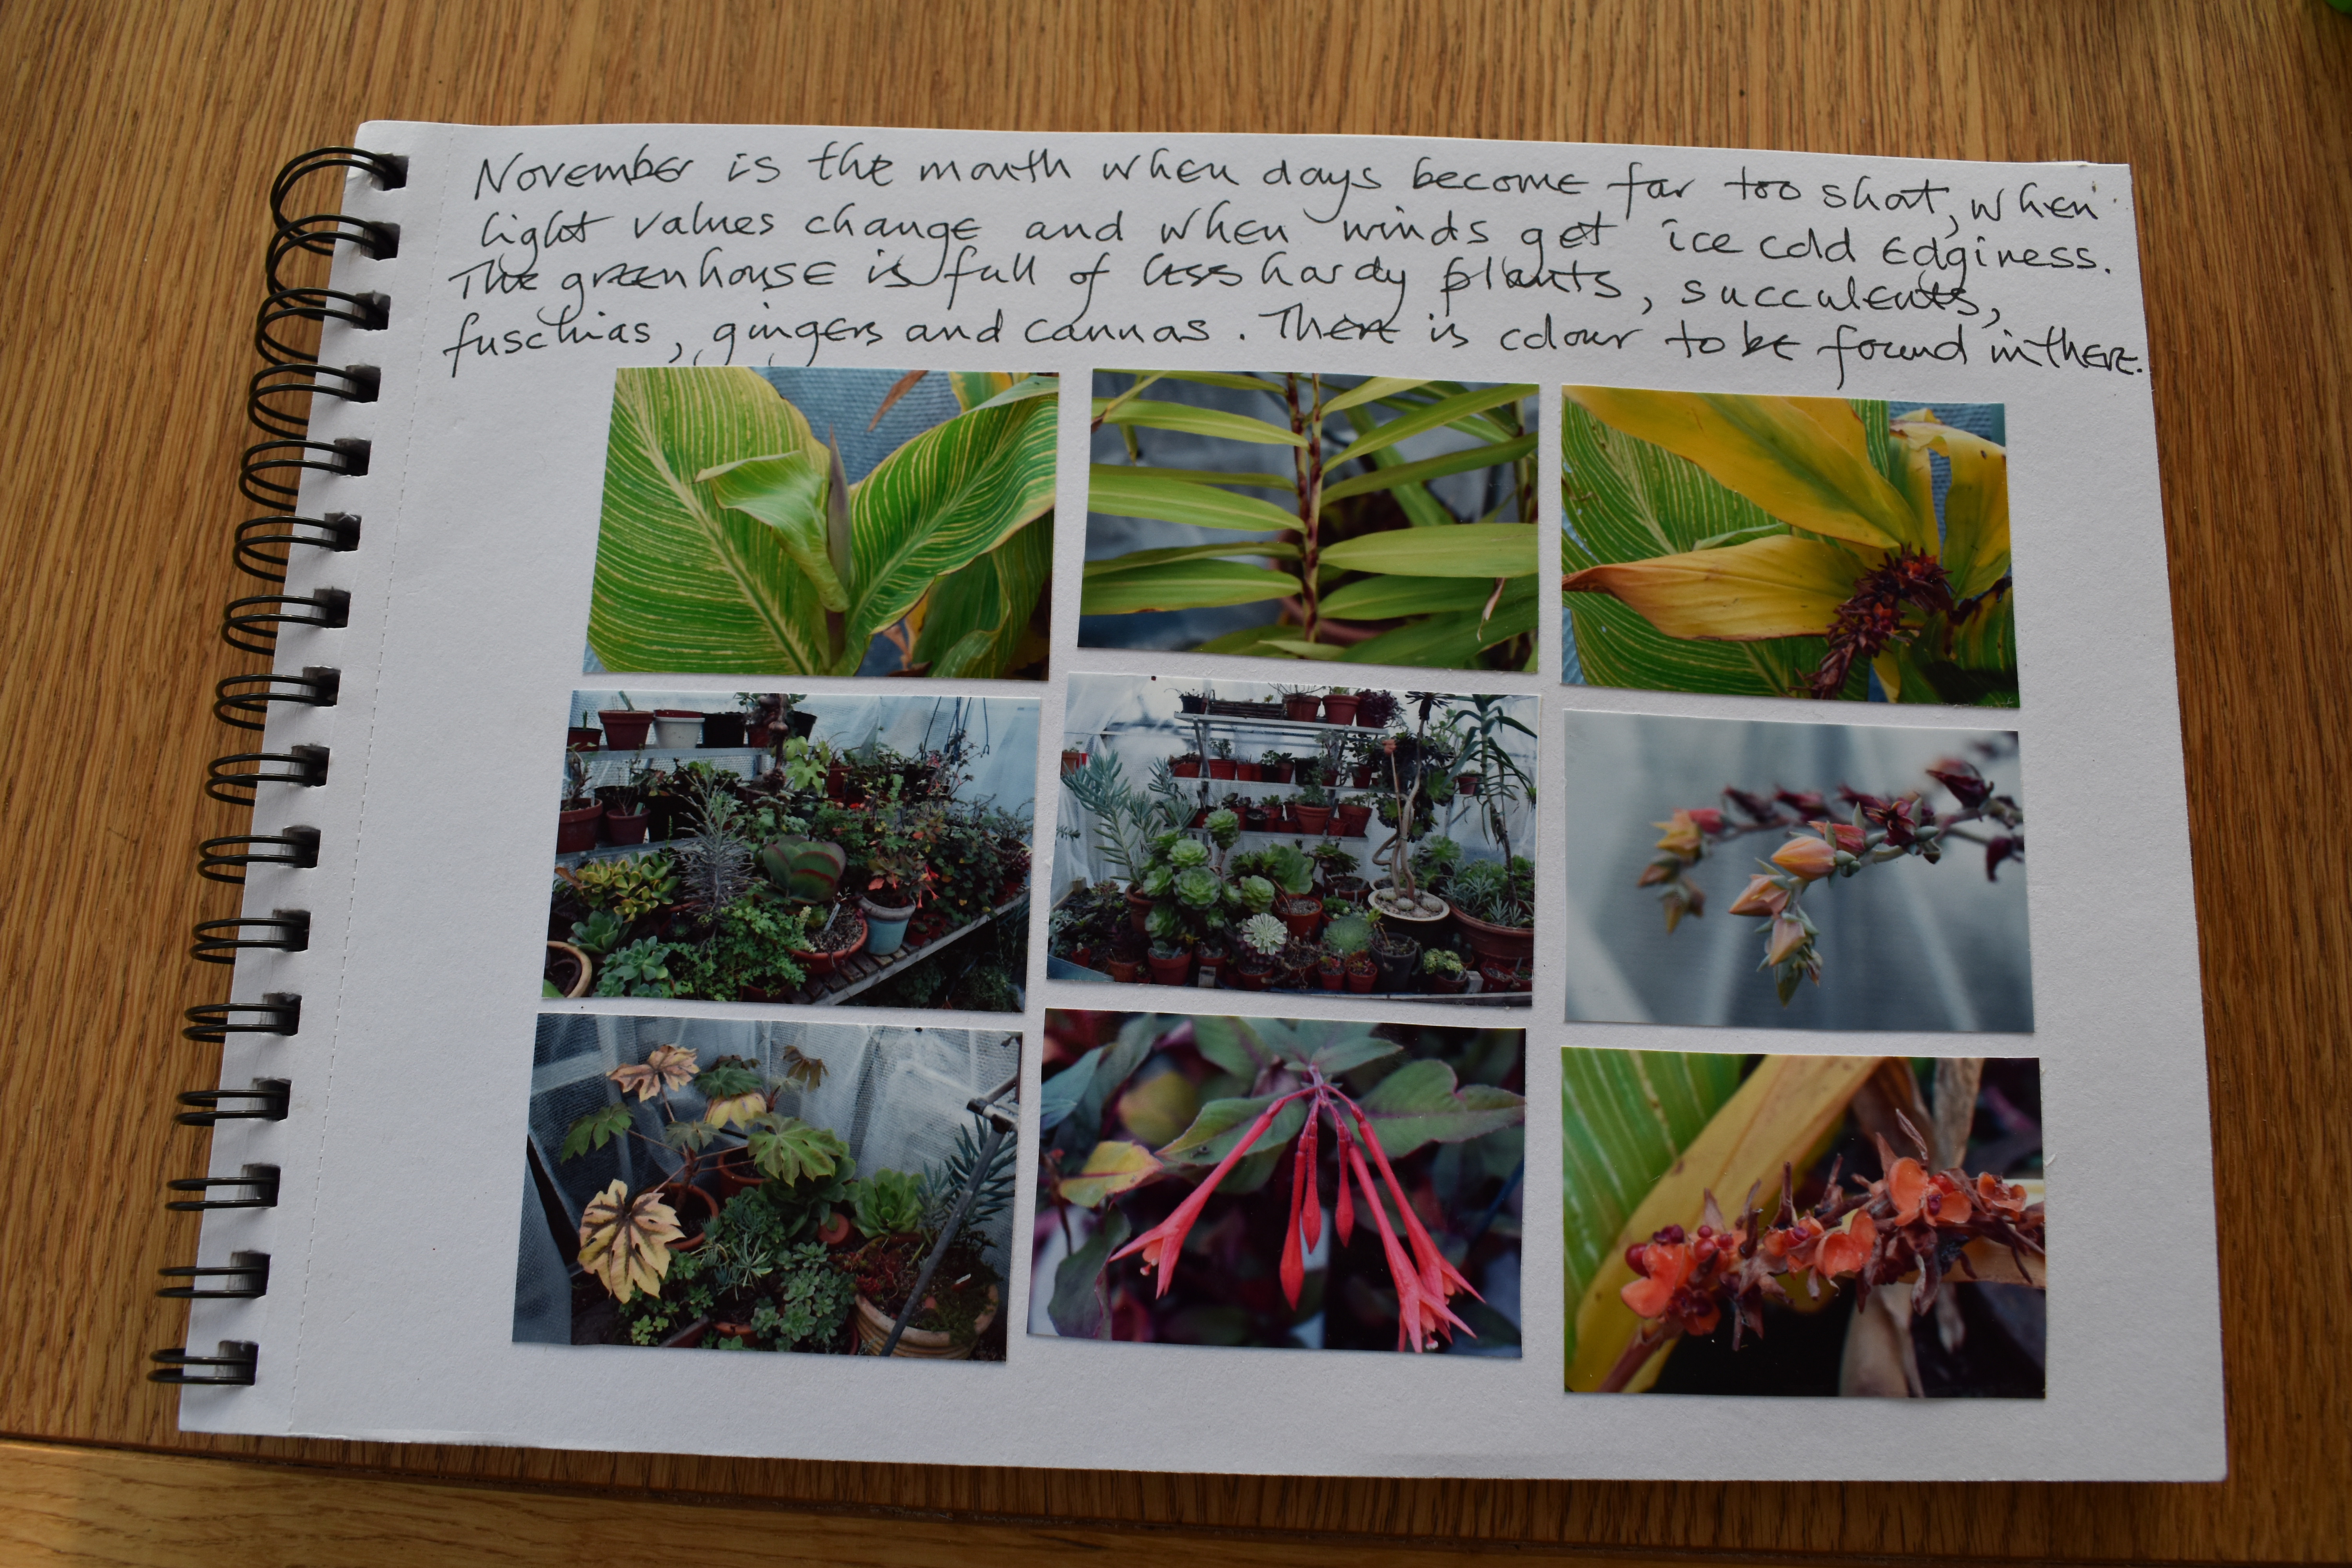 November is the month when days become far too short, when
light values change and when winds get ice cold edginess.
The greenhouse is full of less hardy plants, succulents,
fuschias, gingers and cannas. There is colour to be found in there.